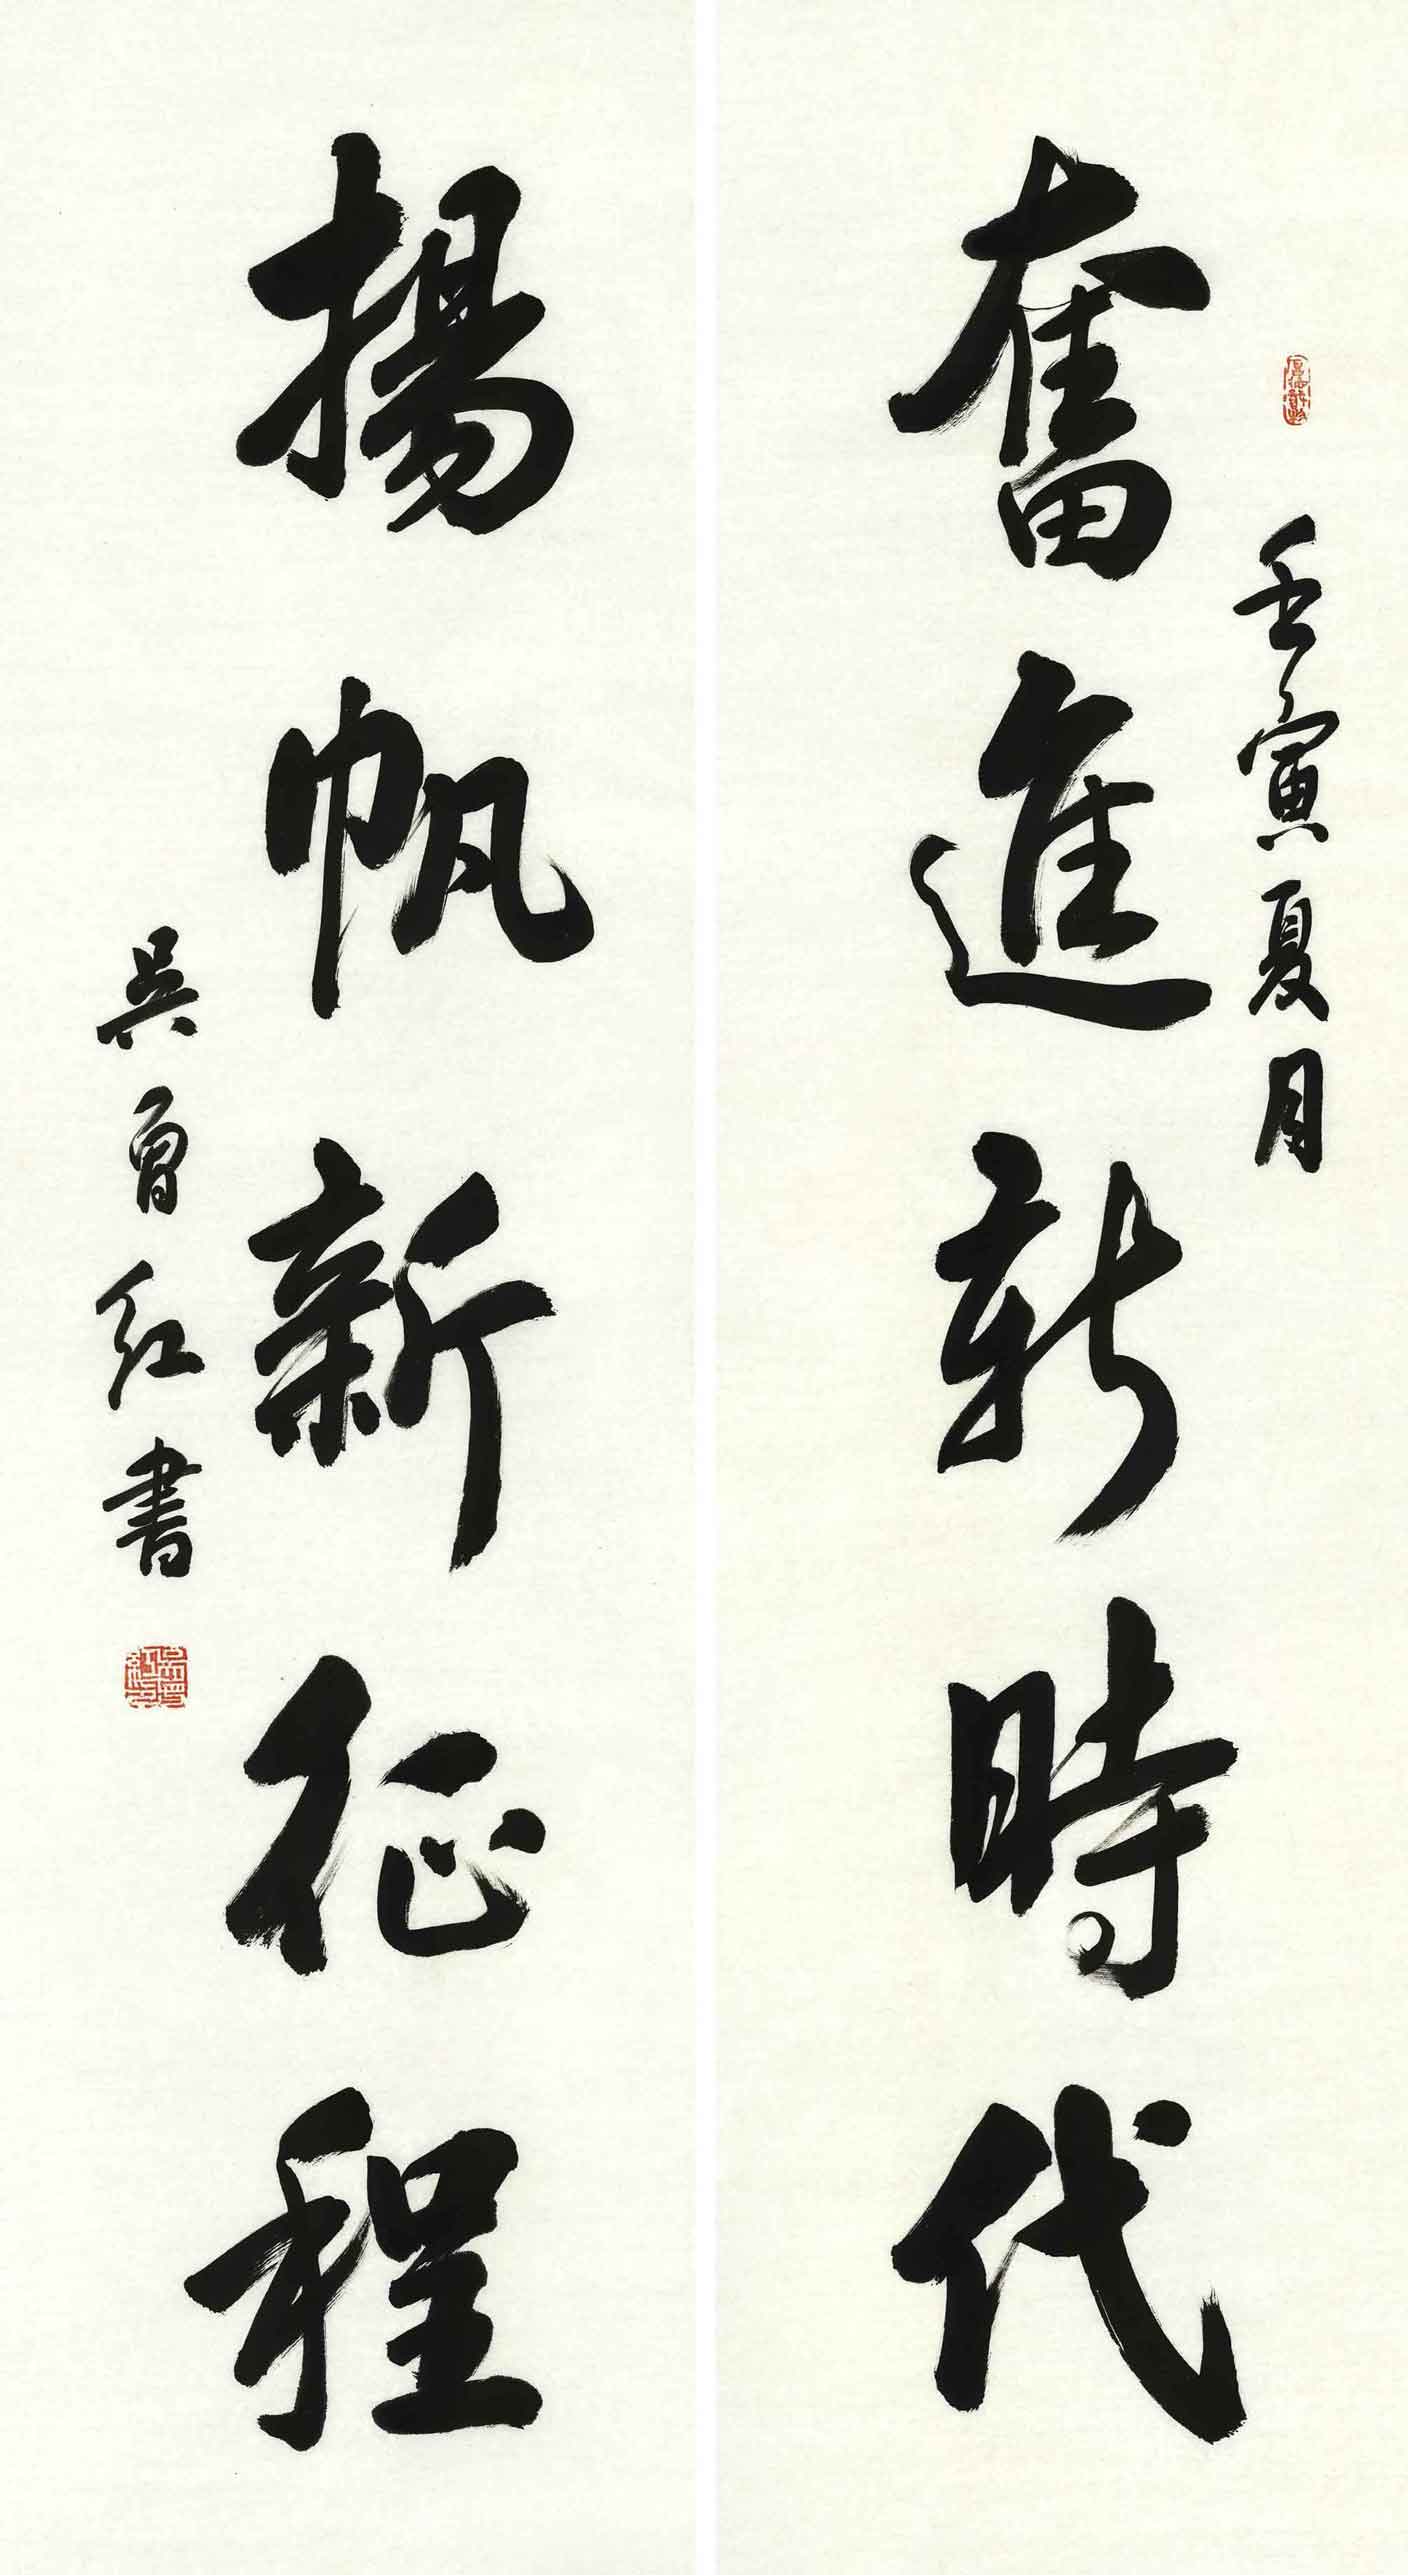 壬寅夏月
奮進新時代
揚帆新征程
吳曾紅書